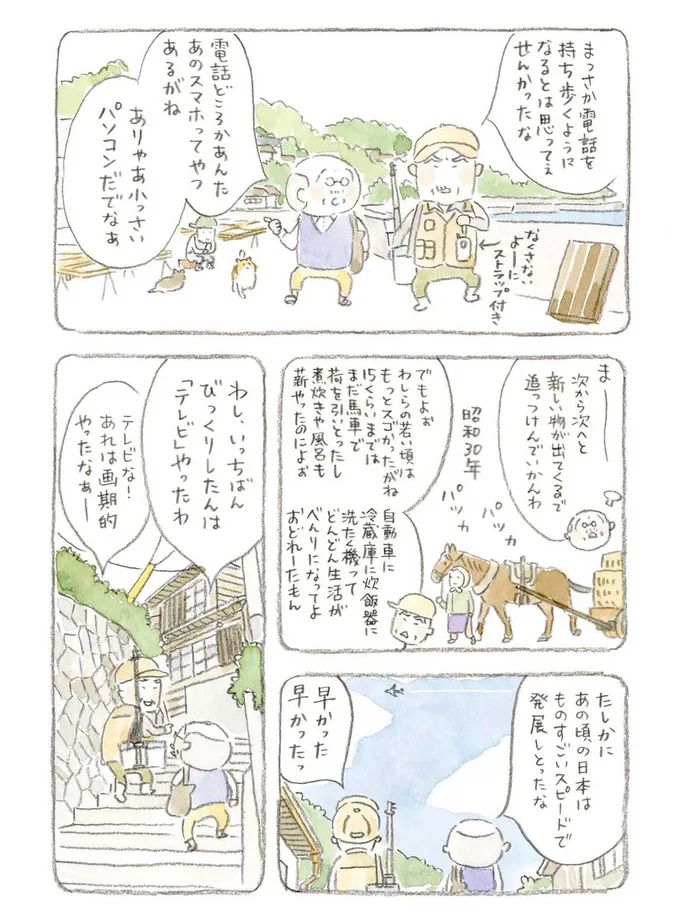 まっさか電話を
持ち歩くように
なるとは思ってえ
せんかったな
電話どころかあんた
あのスマホってやつ
あるがね
ありゃあ小っさい
パソコンだでなぁ
なくさない
よーに
ストラップ付き
まー
次から次へと
新しい物が出てくるで
追っつけんでいかんわ
昭和30年
パッカ
パッカ
でもよぉ
わしらの若い頃は
もっとスゴかったがね
15くらいまでは
まだ馬車で
荷を引いとったし
煮炊きや風呂も
薪やったのによぉ
自動車に
冷蔵庫に炊飯器に
洗たく機って
どんどん生活が
べんりになってよ
おどれーたもん
たしかに
あの頃の日本は
ものすごいスピードで
発展しとったな
早かった
早かったっ
わし、いっちばん
びっくりしたんは
「テレビ」やったわ
テレビな!
あれは画期的
やったなぁー